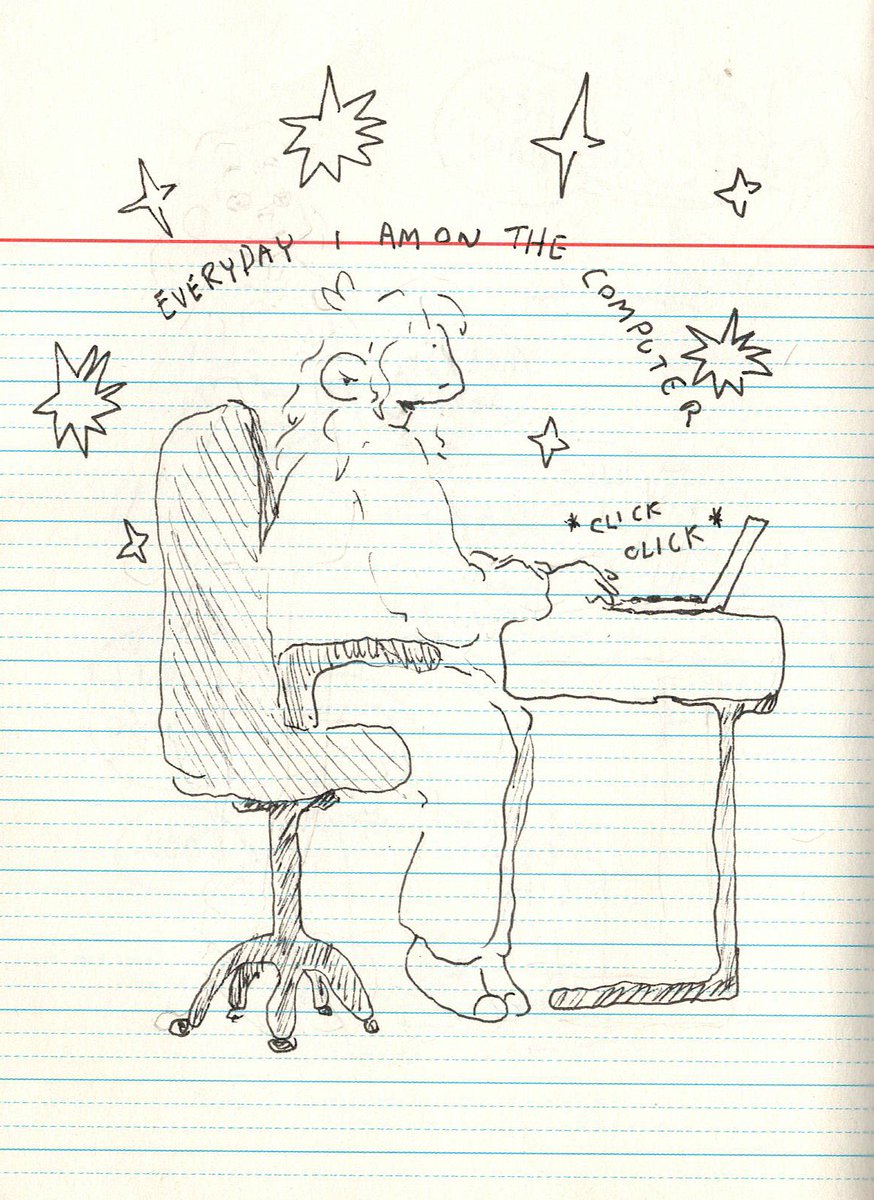 EVERYDAY I AM ON THE COMPUTER
*CLICK
CLICK*